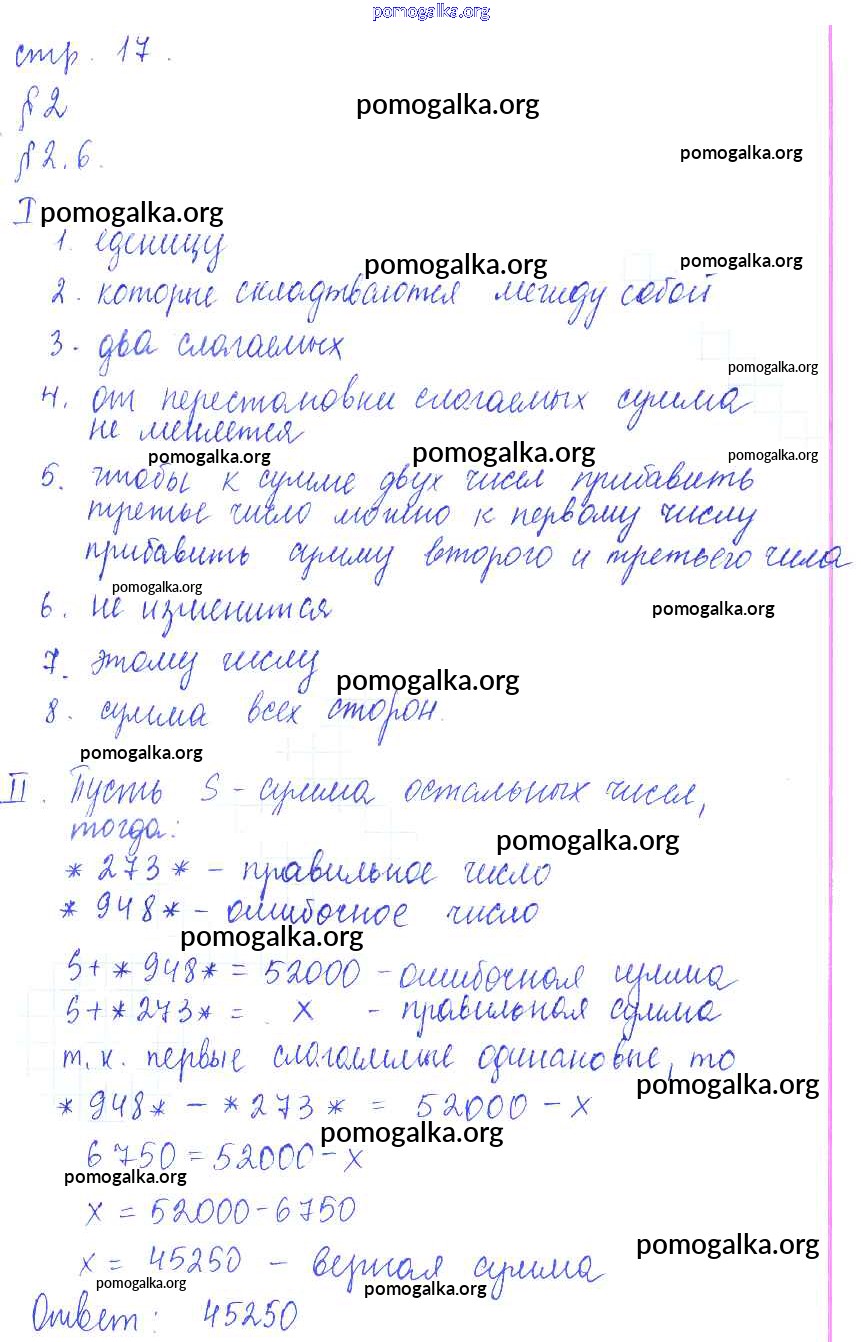 pomogalka.org
стр. 17.
§2
pomogalka.org
§2.6.
pomogalka.org
I
pomogalka.org
1. еденицу
pomogalka.org
pomogalka.org
2. которые складтваются между собой
3. два слогаемых
pomogalka.org
4. от перестановки слогаемых сумма
не меняется
pomogalka.org
pomogalka.org
pomogalka.org
5. чтобы к сумме двух чисел прибавить
третье число можно к первому числу
прибавить сумму второго и третьего чила
pomogalka.org
6. не изменится
pomogalka.org
7. этому числу
pomogalka.org
8. сумма всех сторон.
pomogalka.org
II. Пусть S - сумма остальных чисел,
тогда:
pomogalka.org
*273* - правильное число
*948* - ошибочное число
pomogalka.org
S+*948* = 52000 - ошибочная сумма
S+*273* = x - правильная сумма
т.к. первые слогаемые одинановые, то
pomogalka.org
*948* - *273* = 52000 - x
pomogalka.org
6750 = 52000 - x
pomogalka.org
x = 52000 - 6750
pomogalka.org
x = 45250 - верная сумма
pomogalka.org
pomogalka.org
Ответ: 45250